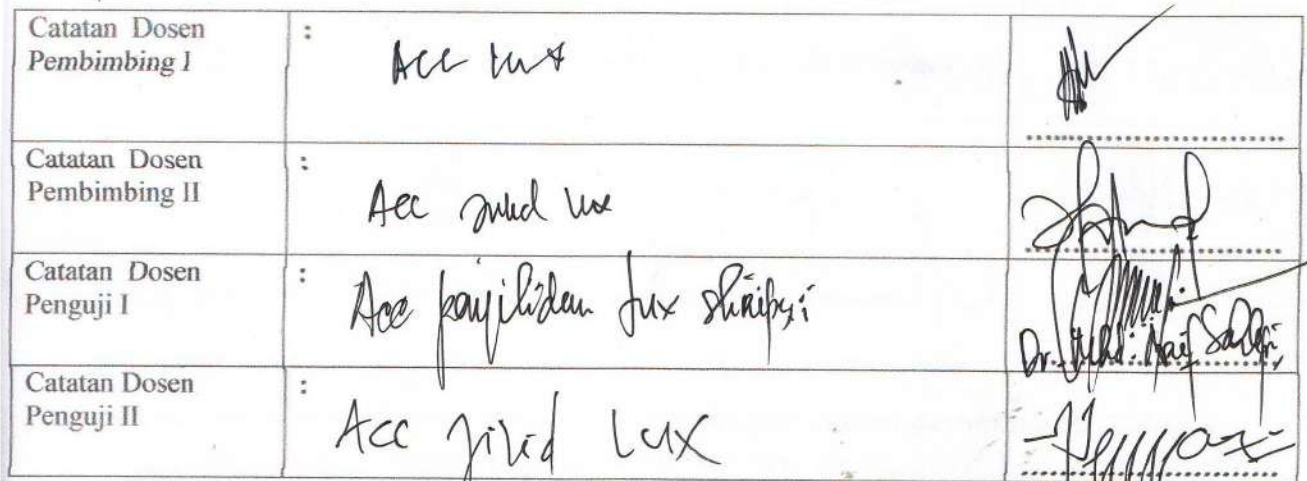 Catatan Dosen :
Pembimbing I
Acc lux
Catatan Dosen :
Pembimbing II
Acc jilid lux
Catatan Dosen :
Penguji I
Acc penjilidan lux skripsi
Catatan Dosen :
Penguji II
Acc jilid Lux